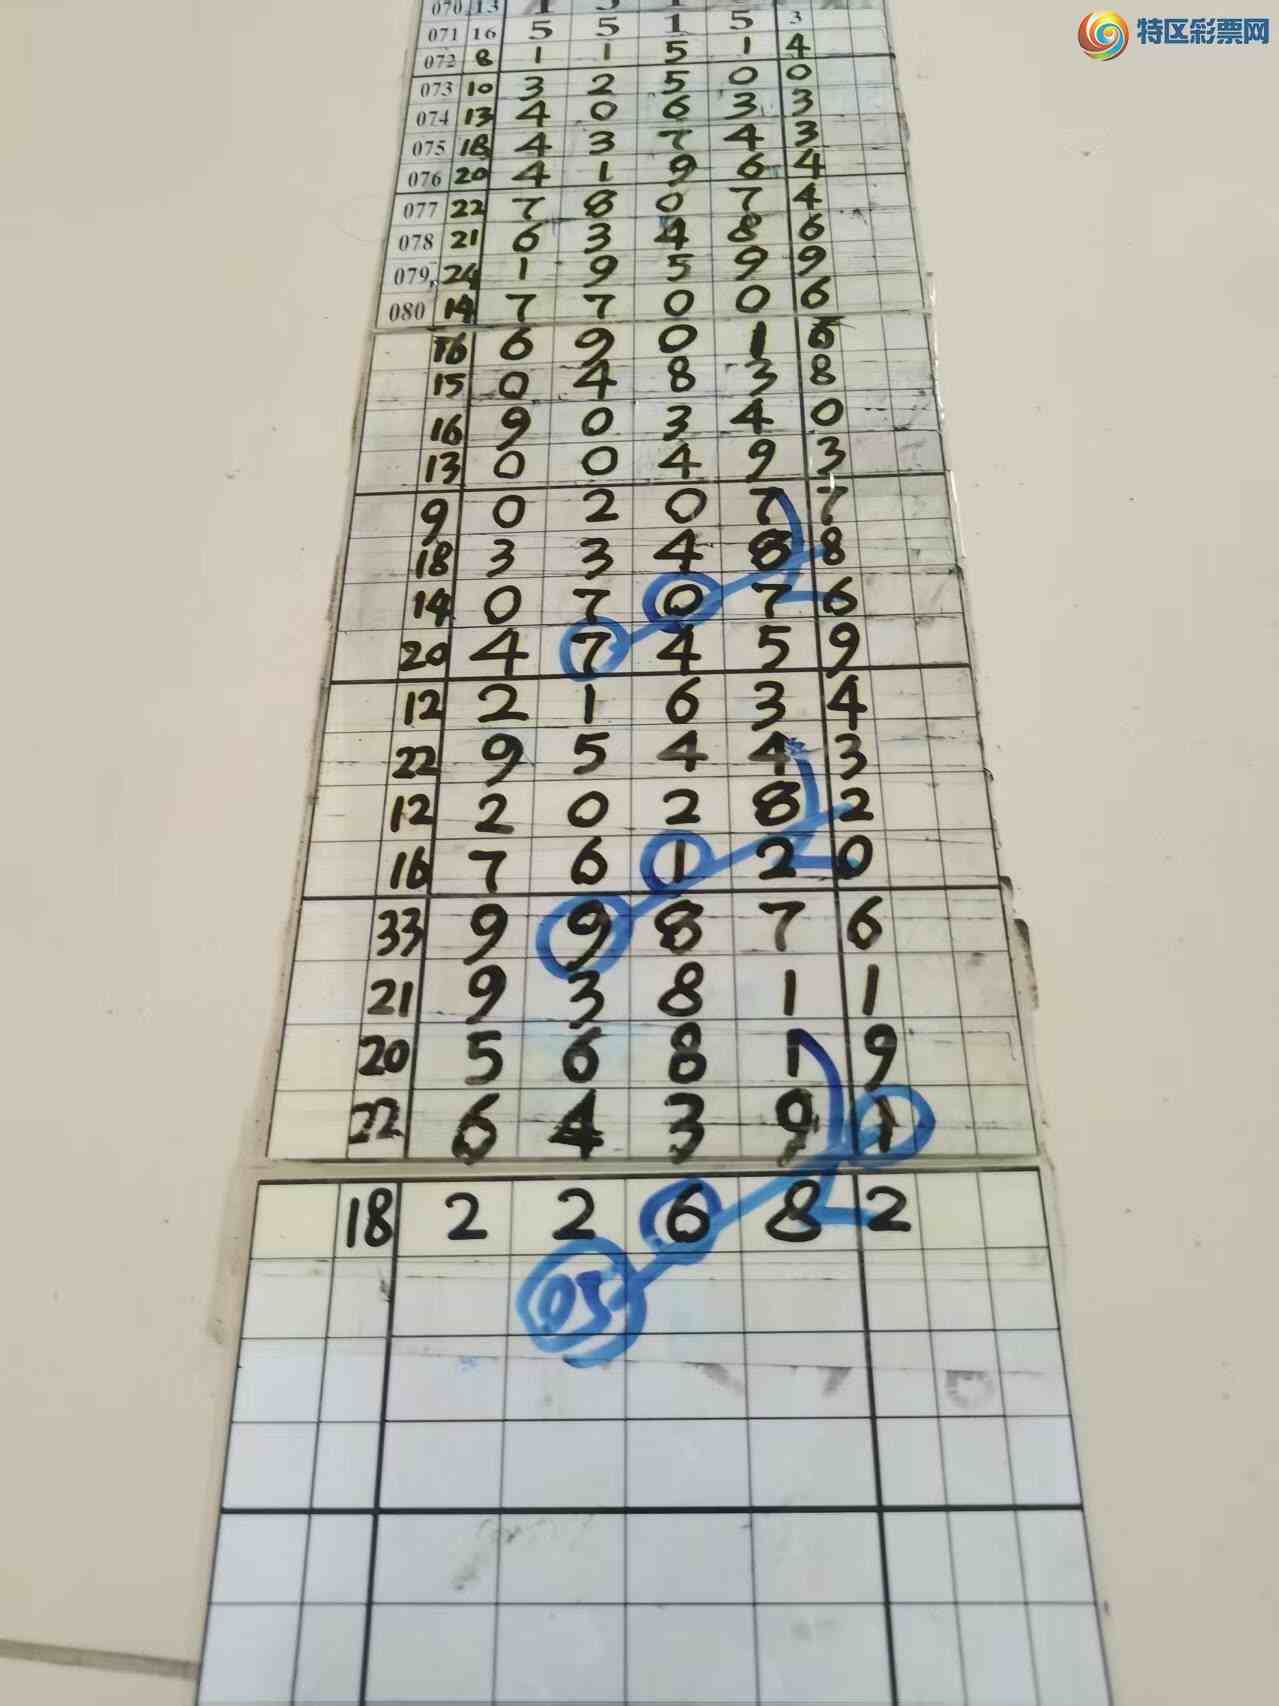 特区彩票网
070 13
071 16 5 5 1 5 3
072 8 1 1 5 1 4
073 10 3 2 5 0 0
074 13 4 0 6 3 3
075 18 4 3 7 4 3
076 20 4 1 9 6 4
077 22 7 8 0 7 4
078 21 6 3 4 8 6
079 24 1 9 5 9 9
080 14 7 7 0 0 6
16 6 9 0 1 6
15 0 4 8 3 8
16 9 0 3 4 0
13 0 0 4 9 3
9 0 2 0 7 7
18 3 3 4 8 8
14 0 7 0 7 6
20 4 7 4 5 9
12 2 1 6 3 4
22 9 5 4 4 3
12 2 0 2 8 2
16 7 6 1 2 0
33 9 9 8 7 6
21 9 3 8 1 1
20 5 6 8 1 9
22 6 4 3 9 1
18 2 2 6 8 2
05